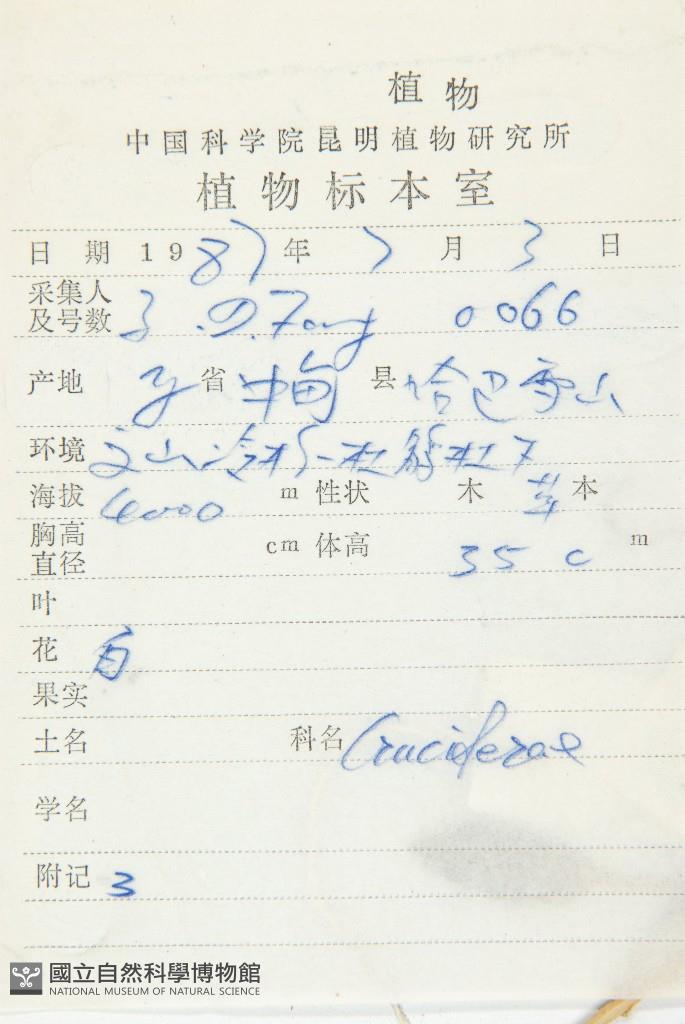 植物
中国科学院昆明植物研究所
植物标本室
日期 1987年 7月 3日
采集人
及号数 0066
产地 省 中甸 县 哈巴雪山
环境 冷杉 杜鹃 下
海拔 4000 m 性状 木 草 本
胸高
直径 cm 体高 35 c m
叶
花 白
果实
土名 科名 Cruciferae
学名
附记 3
國立自然科學博物館
NATIONAL MUSEUM OF NATURAL SCIENCE